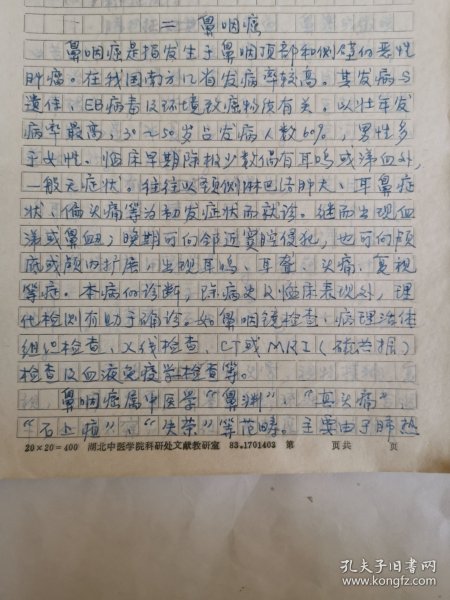 二 鼻咽癌
鼻咽癌是指发生于鼻咽顶部和侧壁的恶性
肿瘤。在我国南方几省发病率较高。其发病与
遗传、EB病毒及环境致癌物质有关。以壮年发
病率最高，30～50岁占发病人数60%，男性多
于女性。临床早期除极少数偶有耳鸣或涕血外，
一般无症状。往往以颈侧淋巴结肿大、耳鼻症
状、偏头痛等为初发症状而就诊。继而出现血
涕或鼻衄；晚期可向邻近窦腔侵犯，也可向颅
底或颅内扩展，出现耳鸣、耳聋、头痛、复视
等症。本病的诊断，除病史及临床表现外，理
化检测有助于确诊。如鼻咽镜检查、病理活体
组织检查、X线检查、CT或MRI（磁共振）
检查及血液免疫学检查等。
鼻咽癌属中医学“鼻渊”、“真头痛”、
“石上疽”、“失荣”等范畴。主要由于肺热
20×20=400 湖北中医学院科研处文献教研室 83.1701403 第 页共 页
孔夫子旧书网
www.kongfz.com